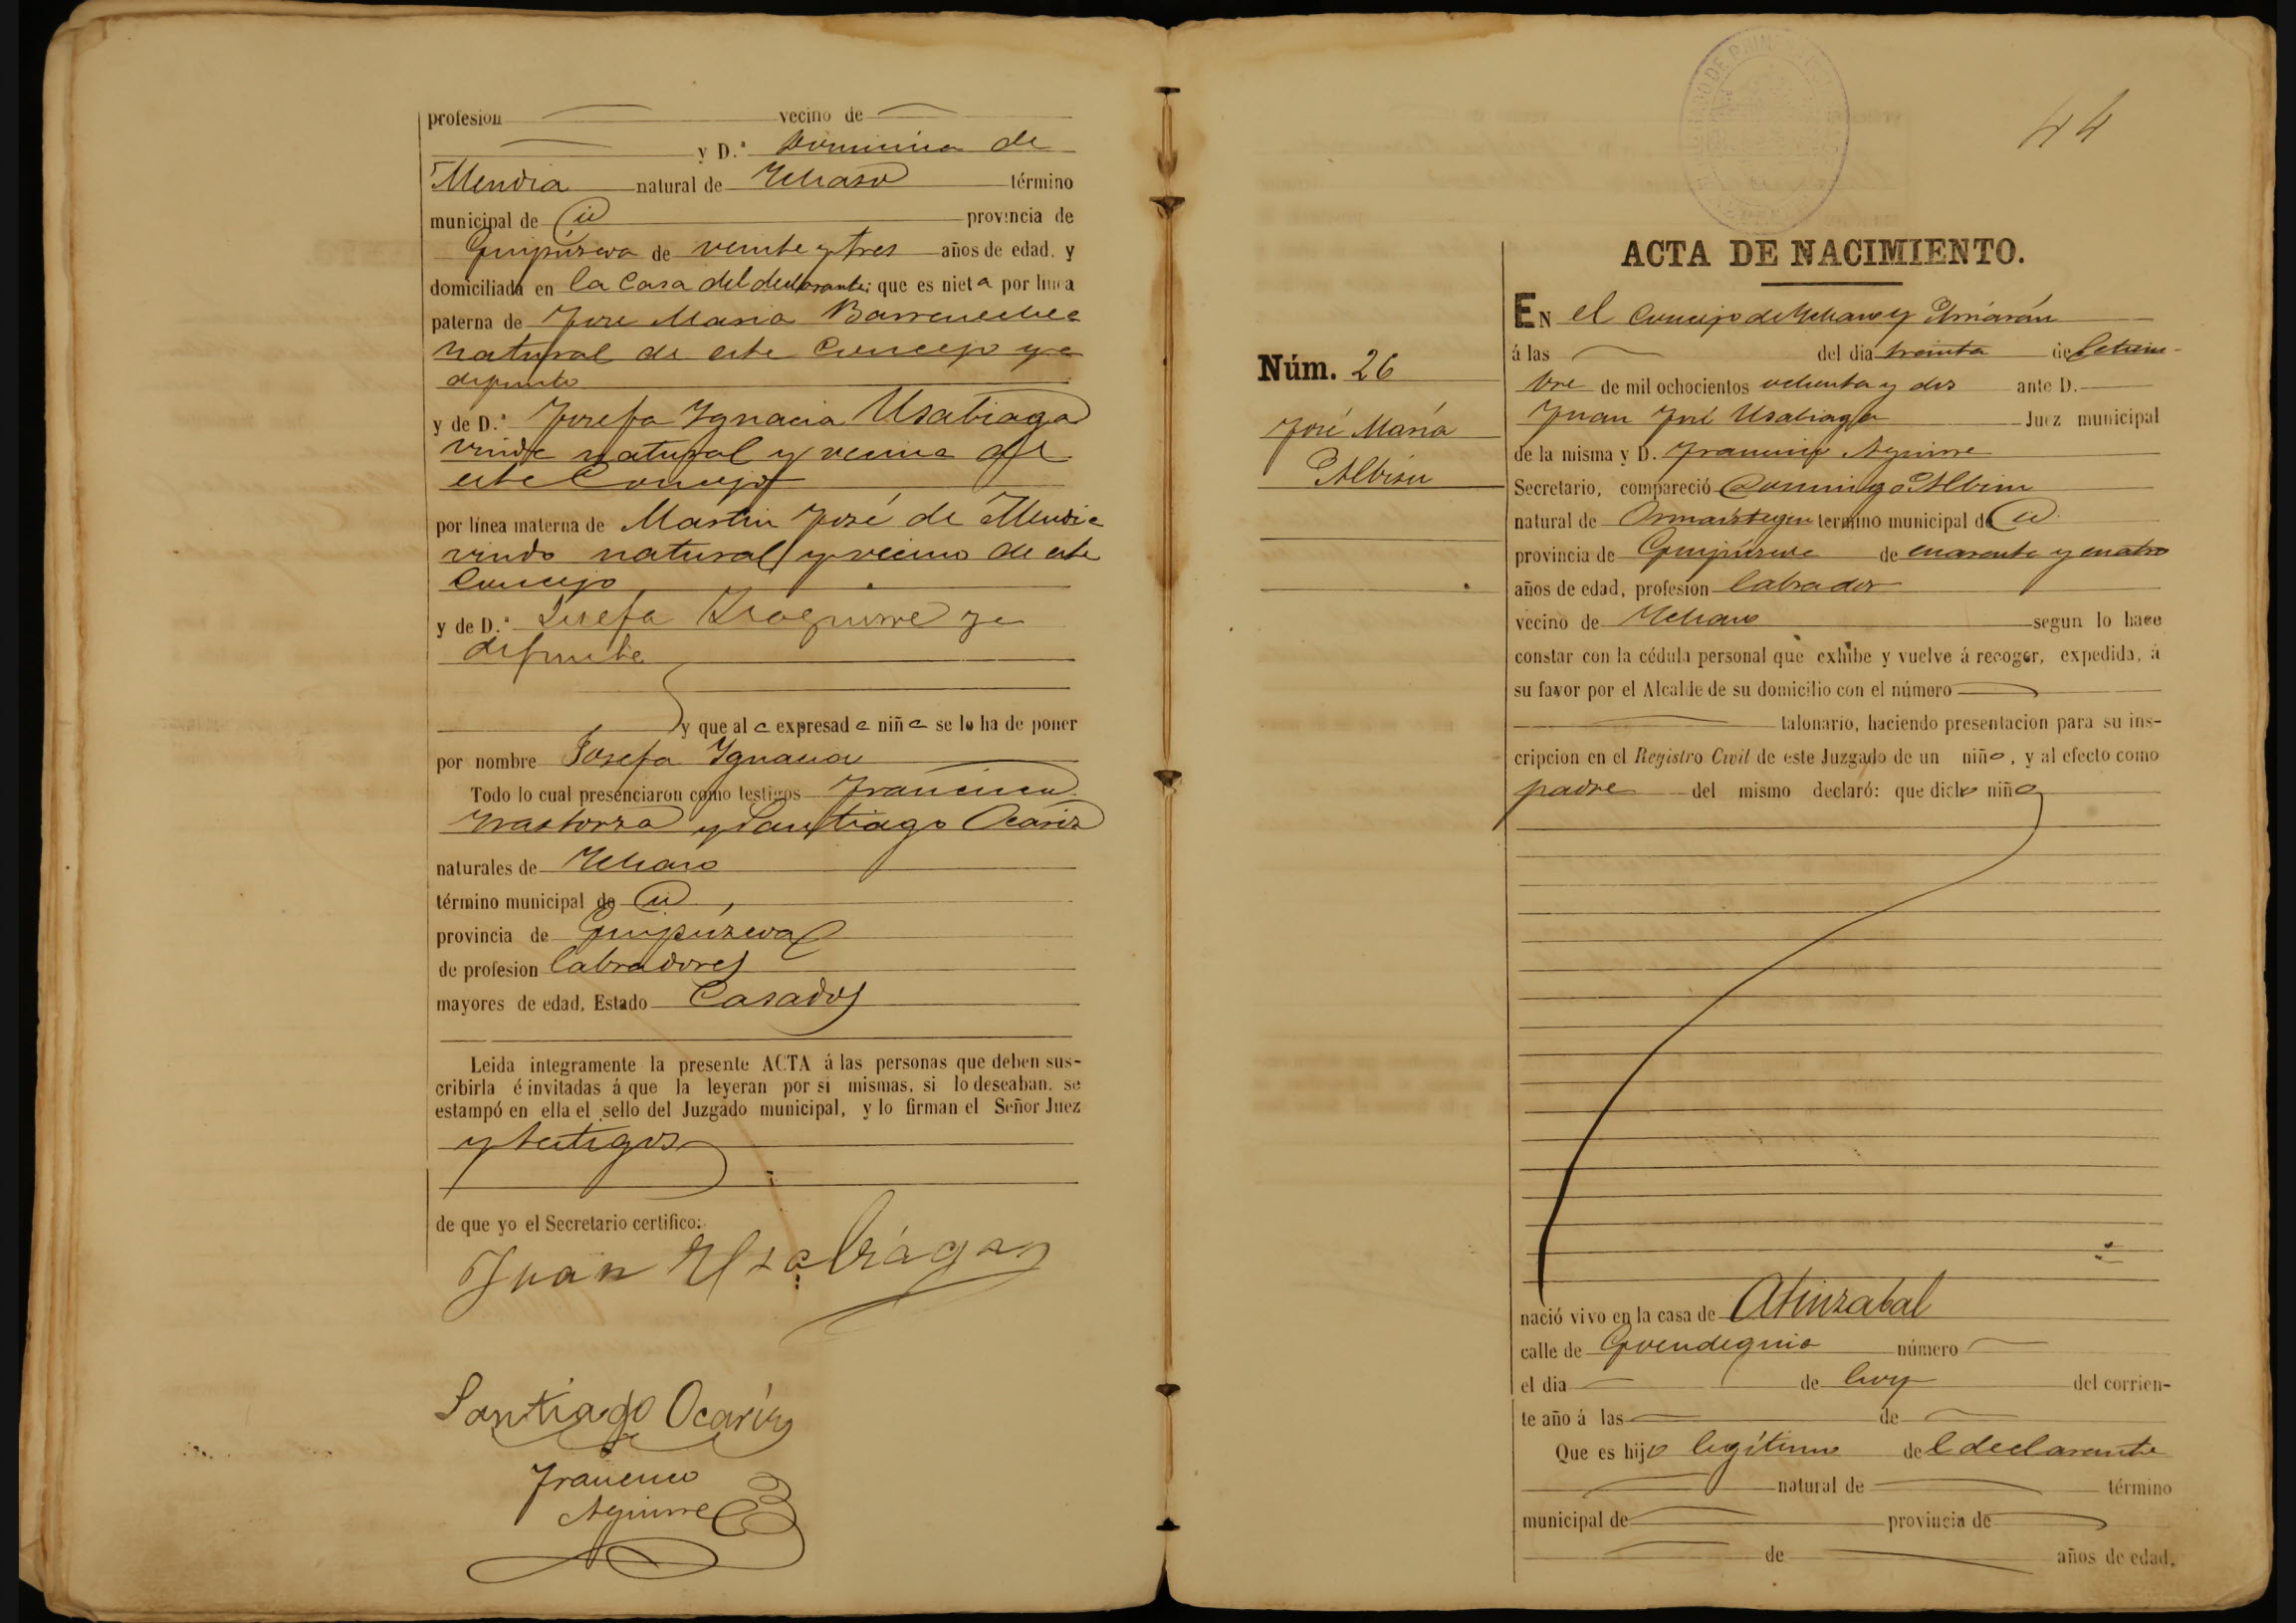 profesion vecino de
y D.ª Dominica de
Mendia natural de Ichaso término
municipal de id provincia de
Guipúzcoa de veinte y tres años de edad. y
domiciliada en la Casa del declarante; que es nieta por linea
paterna de Jose Maria Barrenechea
natural de este Concejo ya
difunto
y de D.ª Josefa Ygnacia Usabiaga
viuda natural y vecina de
este Concejo
por línea materna de Martin José de Mendia
viudo natural y vecino de este
Concejo
y de D.ª Josefa Ysaguirre ya
difunta
y que al a expresad a niñ a se le ha de poner
por nombre Josefa Ygnacia
Todo lo cual presenciaron como testigos Francisco
y Santiago Ocariz
naturales de Ichaso
término municipal de id
provincia de Guipúzcoa
de profesion labradores
mayores de edad, Estado Casados
Leida integramente la presente ACTA á las personas que deben sus-
cribirla é invitadas á que la leyeran por si mismas, si lo deseaban. se
estampó en ella el sello del Juzgado municipal, y lo firman el Señor Juez
y testigos
de que yo el Secretario certifico:
Juan Usabiaga
Santiago Ocariz
Francisco
Aguirre
44
ACTA DE NACIMIENTO.
EN el Concejo de Ichaso y Arriarán
á las del dia treinta de Setiem-
bre de mil ochocientos ochenta y dos ante D.
Juan José Usabiaga Juez municipal
de la misma y D. Francisco Aguirre
Secretario, compareció Domingo Albisu
natural de Ormaiztegui termino municipal de id
provincia de Guipúzcoa de cuarenta y cuatro
años de edad, profesion labrador
vecino de Ichaso segun lo hace
constar con la cédula personal que exhibe y vuelve á recoger, expedida, á
su favor por el Alcalde de su domicilio con el número
talonario, haciendo presentacion para su ins-
cripcion en el Registro Civil de este Juzgado de un niño, y al efecto como
padre del mismo declaró: que dicho niño
Núm. 26
José Maria
Albisu
nació vivo en la casa de
calle de número
el dia de hoy del corrien-
te año á las de
Que es hijo legítimo del declarante
natural de término
municipal de provincia de
de años de edad,